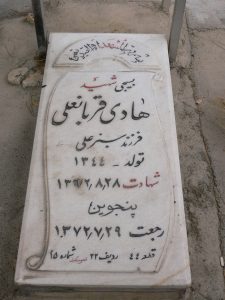 بسیجی شهید
هادی قربانعلی
فرزند سبزعلی
تولد - ۱۳۴۴
شهادت ۱۳۶۲٫۸٫۲۸
پنجوین
رجعت ۱۳۷۲٫۷٫۲۹
قطعه ۴۴ ردیف ۲۲ شماره ۱۵